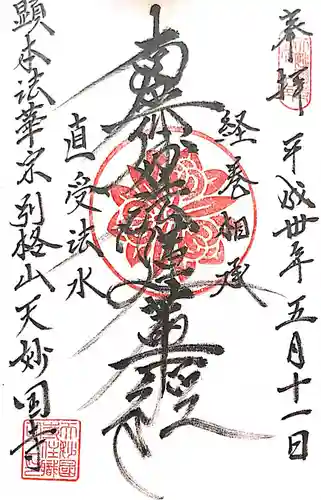 奉拝 平成卅年五月十一日
経巻相承
南無妙法蓮華経
直受法水
顕本法華宗別格山天妙国寺